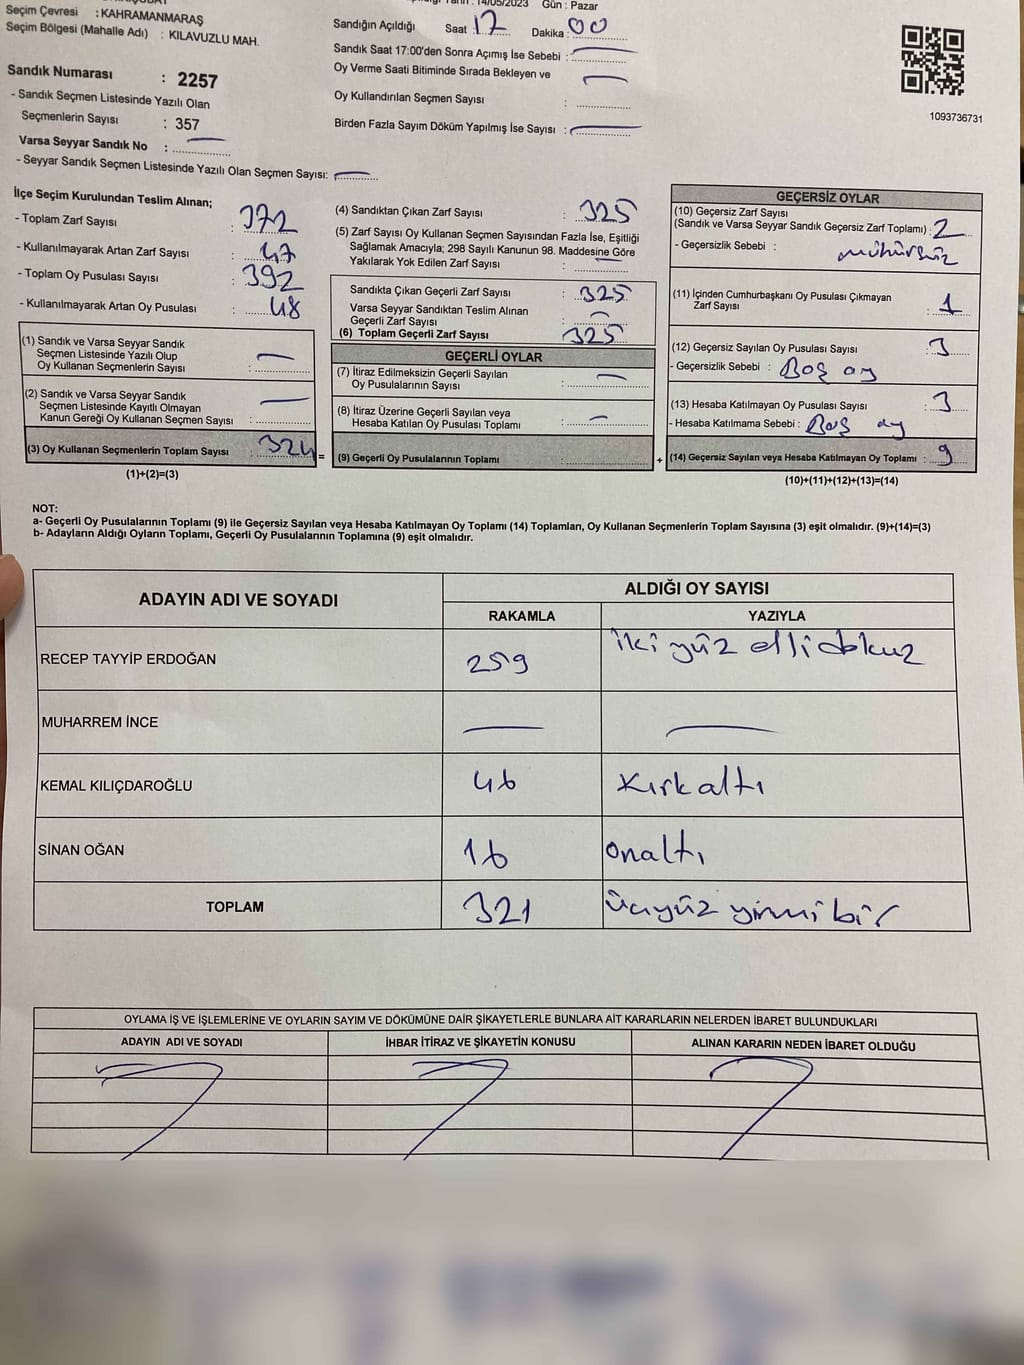 14/05/2023 Gün : Pazar
Seçim Çevresi : KAHRAMANMARAŞ
Seçim Bölgesi (Mahalle Adı) : KILAVUZLU MAH.
Sandık Numarası : 2257
- Sandık Seçmen Listesinde Yazılı Olan
Seçmenlerin Sayısı : 357
Varsa Seyyar Sandık No :
- Seyyar Sandık Seçmen Listesinde Yazılı Olan Seçmen Sayısı:
Sandığın Açıldığı Saat : 17 Dakika : 00
Sandık Saat 17:00'den Sonra Açımış İse Sebebi :
Oy Verme Saati Bitiminde Sırada Bekleyen ve
Oy Kullandırılan Seçmen Sayısı :
Birden Fazla Sayım Döküm Yapılmış İse Sayısı :
1093736731
İlçe Seçim Kurulundan Teslim Alınan;
- Toplam Zarf Sayısı : 372
- Kullanılmayarak Artan Zarf Sayısı : 47
- Toplam Oy Pusulası Sayısı : 392
- Kullanılmayarak Artan Oy Pusulası : 48
(1) Sandık ve Varsa Seyyar Sandık
Seçmen Listesinde Yazılı Olup
Oy Kullanan Seçmenlerin Sayısı :
(2) Sandık ve Varsa Seyyar Sandık
Seçmen Listesinde Kayıtlı Olmayan
Kanun Gereği Oy Kullanan Seçmen Sayısı :
(3) Oy Kullanan Seçmenlerin Toplam Sayısı : 324 =
(1)+(2)=(3)
(4) Sandıktan Çıkan Zarf Sayısı : 325
(5) Zarf Sayısı Oy Kullanan Seçmen Sayısından Fazla İse, Eşitliği
Sağlamak Amacıyla; 298 Sayılı Kanunun 98. Maddesine Göre
Yakılarak Yok Edilen Zarf Sayısı :
Sandıkta Çıkan Geçerli Zarf Sayısı : 325
Varsa Seyyar Sandıktan Teslim Alınan
Geçerli Zarf Sayısı :
(6) Toplam Geçerli Zarf Sayısı 325
GEÇERLİ OYLAR
(7) İtiraz Edilmeksizin Geçerli Sayılan
Oy Pusulalarının Sayısı :
(8) İtiraz Üzerine Geçerli Sayılan veya
Hesaba Katılan Oy Pusulası Toplamı :
(9) Geçerli Oy Pusulalarının Toplamı : +
GEÇERSİZ OYLAR
(10) Geçersiz Zarf Sayısı
(Sandık ve Varsa Seyyar Sandık Geçersiz Zarf Toplamı) : 2
- Geçersizlik Sebebi : mühürsüz
(11) İçinden Cumhurbaşkanı Oy Pusulası Çıkmayan
Zarf Sayısı : 1
(12) Geçersiz Sayılan Oy Pusulası Sayısı : 3
- Geçersizlik Sebebi : Boş oy
(13) Hesaba Katılmayan Oy Pusulası Sayısı : 3
- Hesaba Katılmama Sebebi : Boş oy
(14) Geçersiz Sayılan veya Hesaba Katılmayan Oy Toplamı : 9
(10)+(11)+(12)+(13)=(14)
NOT:
a- Geçerli Oy Pusulalarının Toplamı (9) ile Geçersiz Sayılan veya Hesaba Katılmayan Oy Toplamı (14) Toplamları, Oy Kullanan Seçmenlerin Toplam Sayısına (3) eşit olmalıdır. (9)+(14)=(3)
b- Adayların Aldığı Oyların Toplamı, Geçerli Oy Pusulalarının Toplamına (9) eşit olmalıdır.
ADAYIN ADI VE SOYADI
ALDIĞI OY SAYISI
RAKAMLA YAZIYLA
RECEP TAYYİP ERDOĞAN 259 iki yüz elli dokuz
MUHARREM İNCE
KEMAL KILIÇDAROĞLU 46 Kırk altı
SİNAN OĞAN 16 onaltı
TOPLAM 321 üçyüz yirmi bir
OYLAMA İŞ VE İŞLEMLERİNE VE OYLARIN SAYIM VE DÖKÜMÜNE DAİR ŞİKAYETLERLE BUNLARA AİT KARARLARIN NELERDEN İBARET BULUNDUKLARI
ADAYIN ADI VE SOYADI İHBAR İTİRAZ VE ŞİKAYETİN KONUSU ALINAN KARARIN NEDEN İBARET OLDUĞU